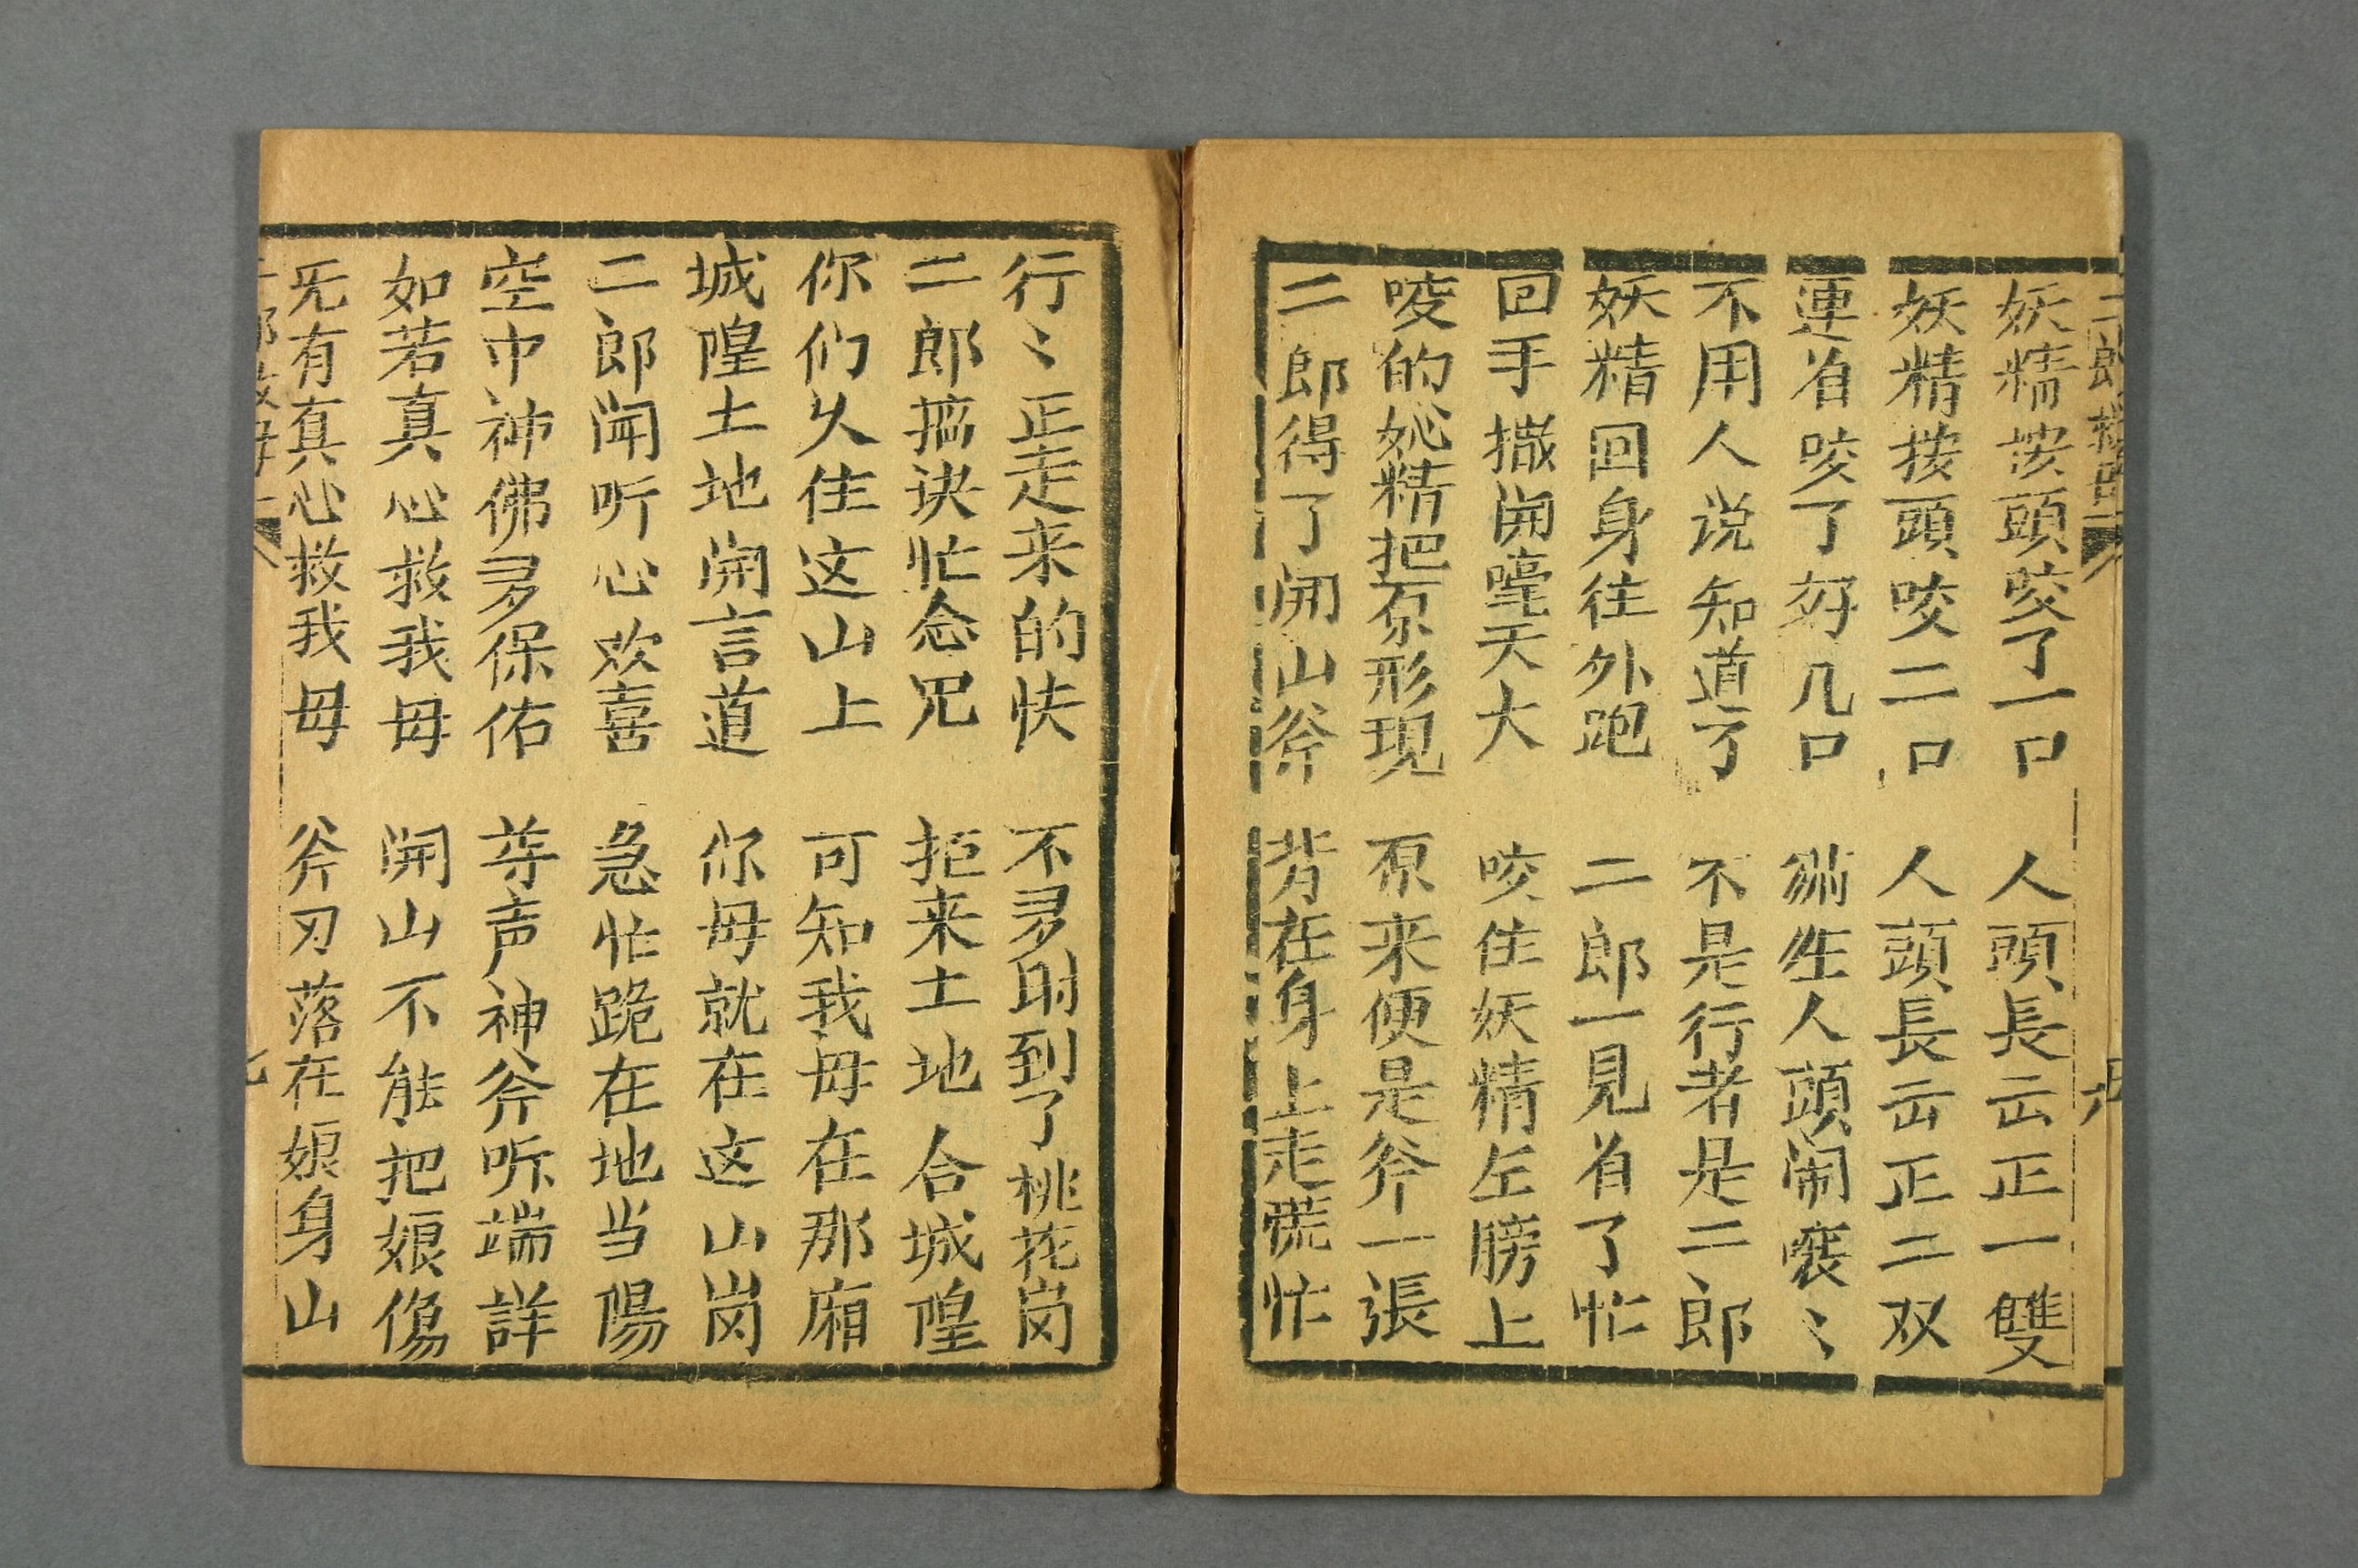 二郎救母
六
妖精按頭咬了一口　人頭長出正一雙
妖精按頭咬二口　人頭長出正二双
連着咬了好几口　衚生人頭闹嚷〻
不用人说知道了　不是行者是二郎
妖精回身往外跑　二郎一見着了忙
回手撒開嚎天大　咬住妖精左膀上
咬的妖精把原形現　原来便是斧一張
二郎得了開山斧　背在身上走慌忙
行〻正走来的快　不多时到了桃花岗
二郎掐诀忙念咒　拒来土地合城隍
你们久住这山上　可知我母在那廂
城隍土地開言道　你母就在这山岗
二郎闻听心欢喜　急忙跪在地当陽
空中神佛多保佑　尊声神斧听端詳
如若真心救我母　開山不能把娘傷
旡有真心救我母　斧刃落在娘身山
二郎救母
七